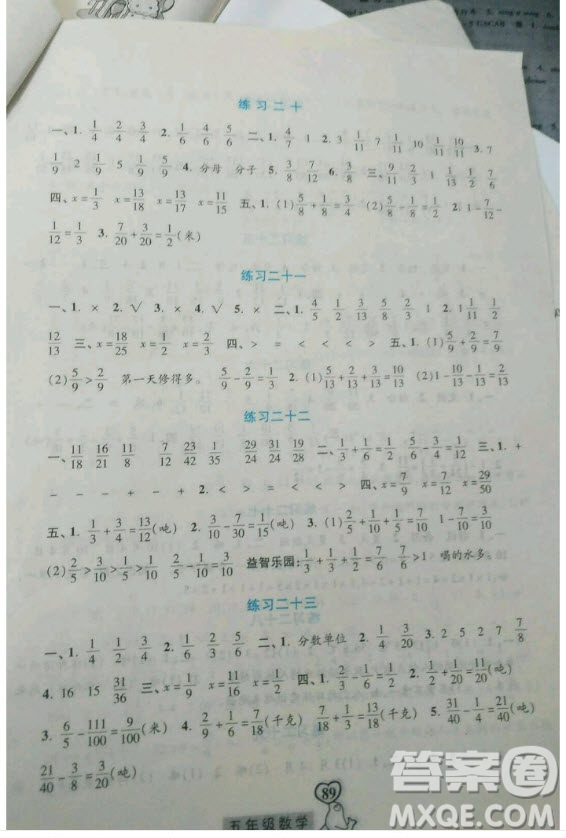 练习二十
一、1. 1/4 2/4 3/4 2. 1/6 4/6 5/6 二、1. 4/7 1 2. 3 7/11 1/11 10/11 3. 7
1/9 2 1/9 5 1/9 1/5 4. 分母 分子 5. 3/8 7/12 6. 3/8 三、9/11 2/3 1 1/13 1/2 7/6
四、x=1/3 x=13/18 x=13/17 x=11/15 五、1. (1)5/8+1/8=3/4 (2)5/8-1/8=1/2 2. 1-7/12-
1/12=1/3 3. 7/20+3/20=1/2(米)
练习二十一
一、1. × 2. √ 3. × 4. √ 5. × 二、1. 4/5 1/2 3/5 1/2 2/3 1/2 2. 10/11
12/13 三、x=18/25 x=1/2 x=2/3 四、> = < < < > 五、1. (1)5/9+2/9=7/9
(2)5/9>2/9 第一天修得多。 5/9-2/9=1/3 2. (1)5/13+2/13+3/13=10/13 (2)1-10/13-1/13=2/13
练习二十二
一、11/18 16/21 11/8 7/12 23/42 1/35 29/24 31/19 19/24 29/28 二、1/3+1/6=1/2 1/3-1/4=1/12 三、1. +
- - - + - + 2. < > = < < > 四、x=7/9 x=7/12 x=29/50
五、1. 1/3+3/4=13/12(吨) 2. 3/10-7/30=1/15(吨) 3. (1)2/5+1/10+1/5=7/10 1-7/10=3/10
(2)2/5>3/10>1/5>1/10 2/5-1/10=3/10(吨) 益智乐园：1/3+1/3+1/2=7/6 7/6>1 喝的水多。
练习二十三
一、1. 1/4 1/2 3/4 2. 1/3 2/3 5/6 二、1. 分数单位 2. 1/4 3/20 3. 5 2 2 7 7/8
4. 16 15 31/36 三、x=1/9 x=11/16 x=1/2 四、1. 2/3-1/6=1/2 2. 1/2+1/20=11/20(吨)
3. 6/5-111/100=9/100(米) 4. 2/9+1/6=7/18(千克) 7/18+1/3=13/18(千克) 5. 21/40-1/4=11/40(吨)
21/40-3/8=3/20(吨)
89
五年级数学
答案圈
MXQE.COM